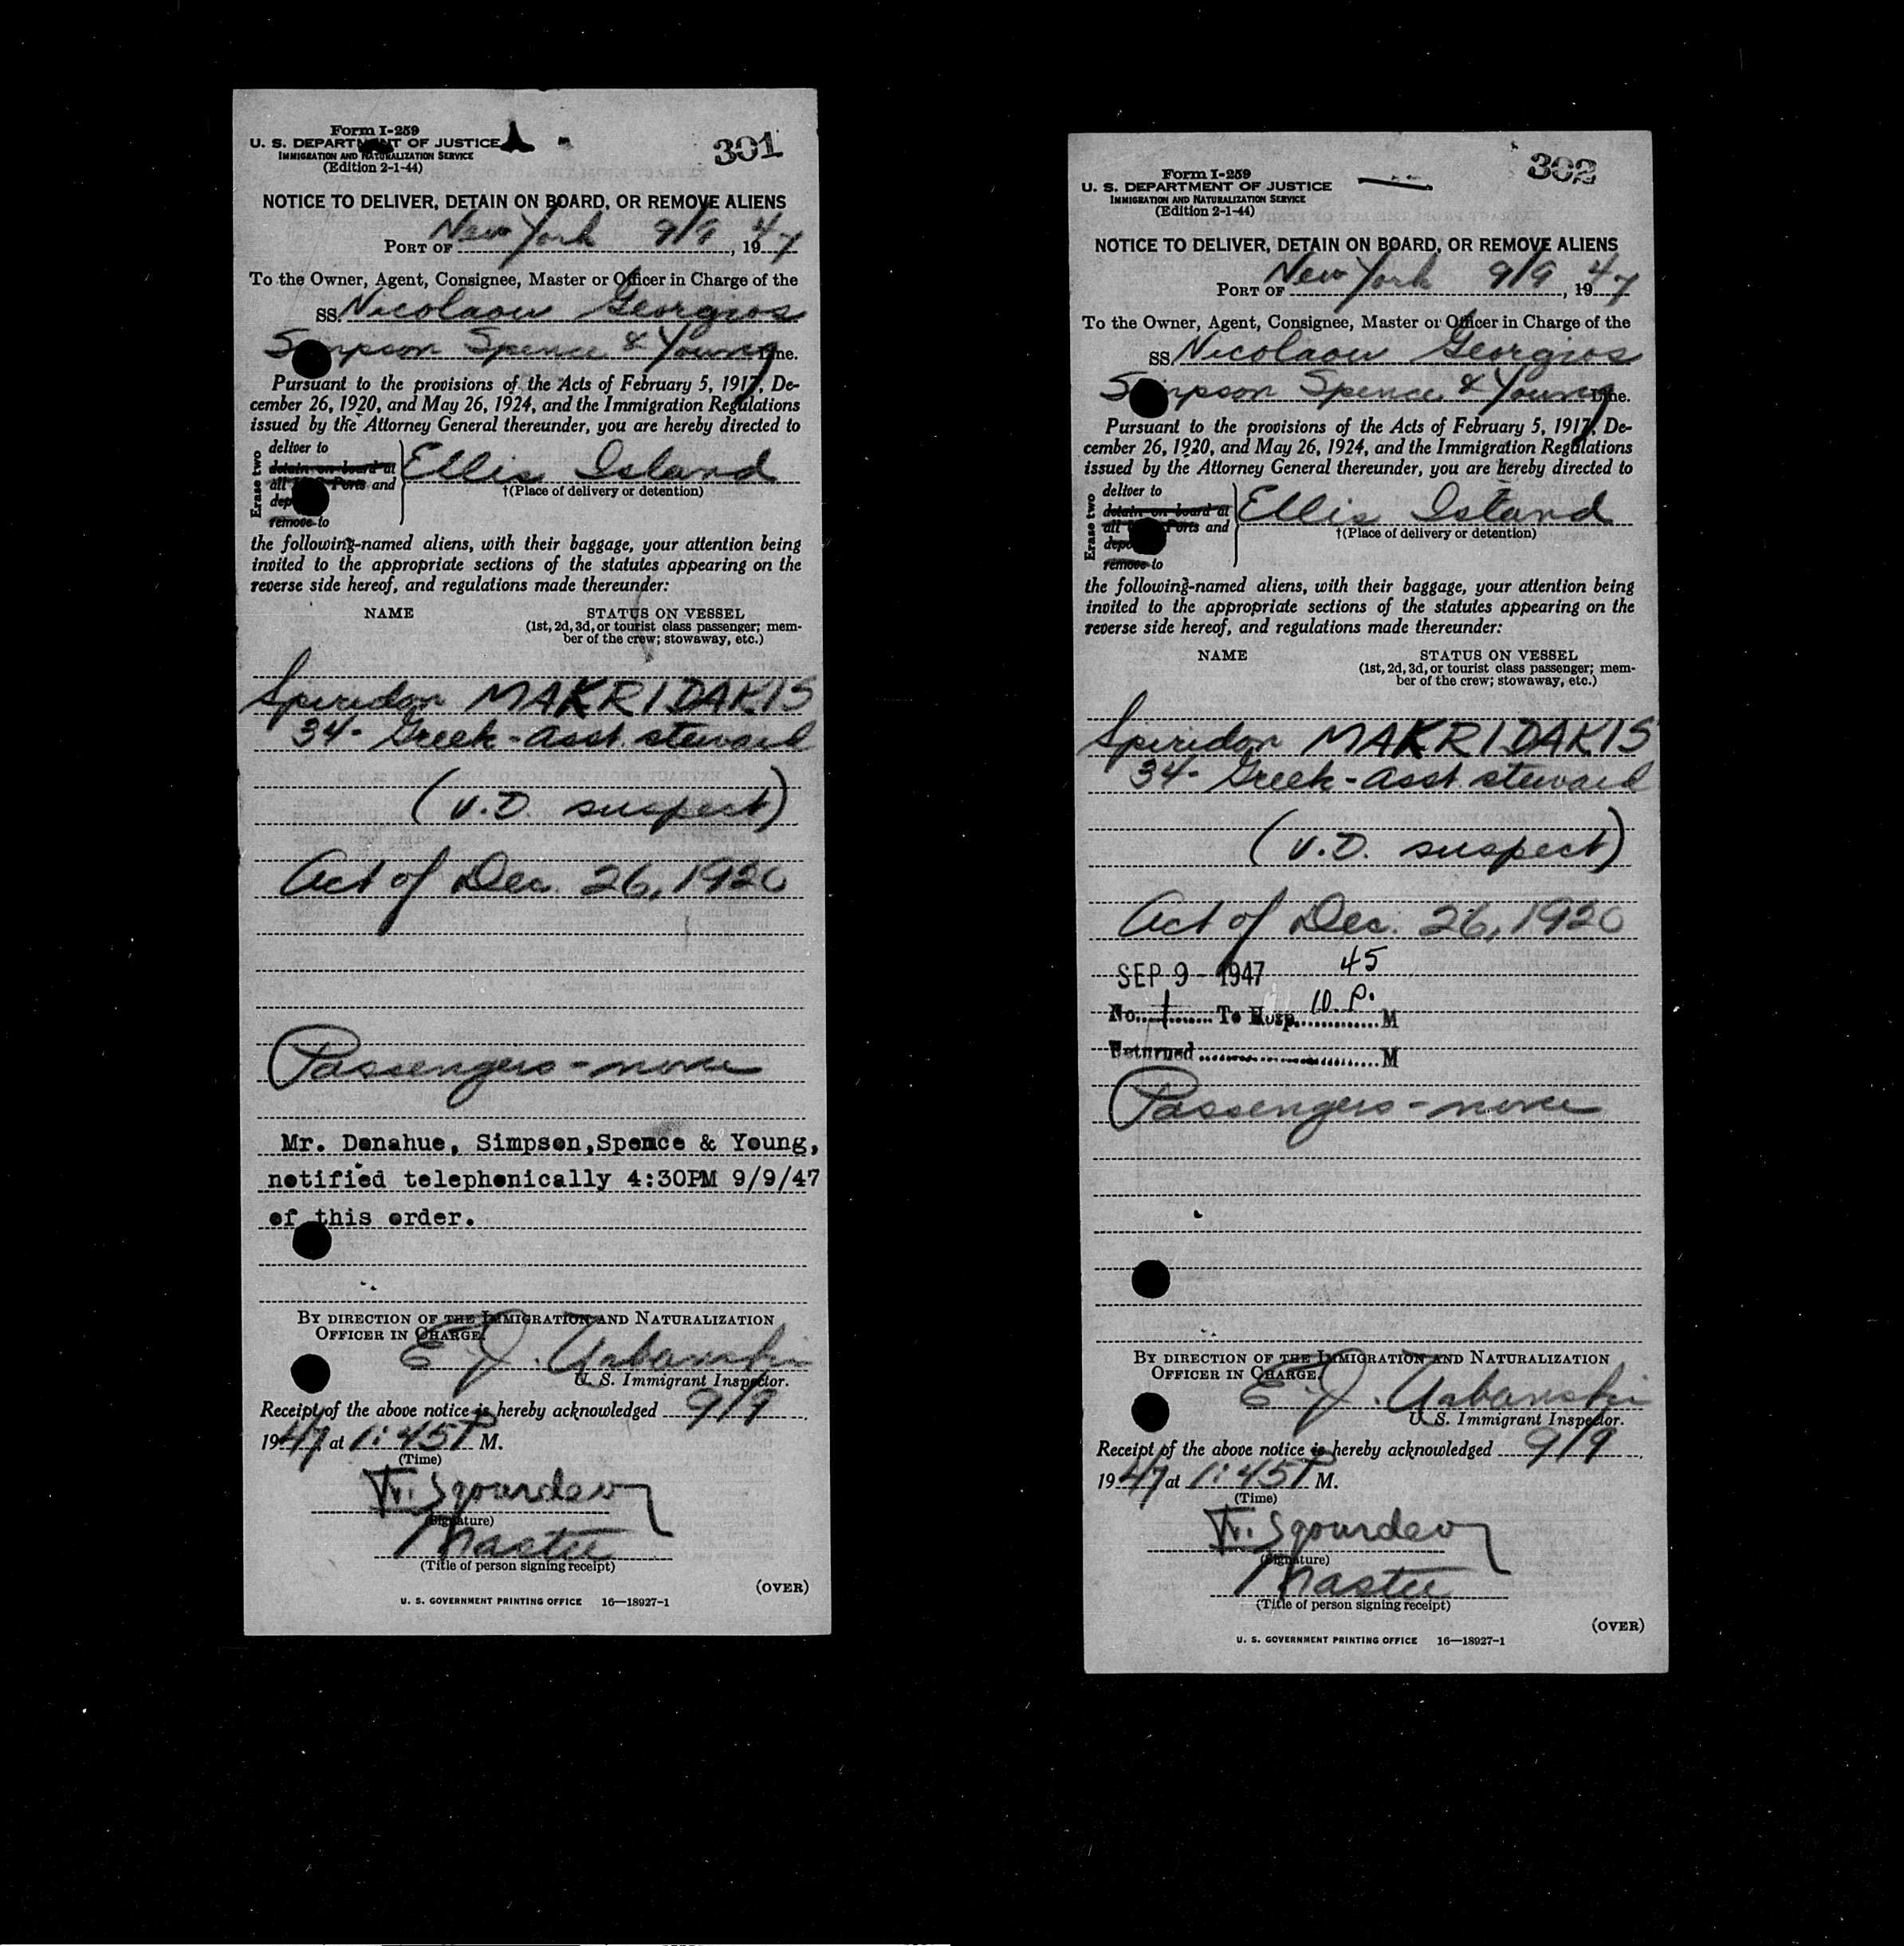 Form I-259
U. S. DEPARTMENT OF JUSTICE
IMMIGRATION AND NATURALIZATION SERVICE
(Edition 2-1-44)
301
NOTICE TO DELIVER, DETAIN ON BOARD, OR REMOVE ALIENS
PORT OF New York 9/9, 1947
To the Owner, Agent, Consignee, Master or Officer in Charge of the
SS. Nicolaou Georgios
Simpson Spence & Young Line.
Pursuant to the provisions of the Acts of February 5, 1917, De-
cember 26, 1920, and May 26, 1924, and the Immigration Regulations
issued by the Attorney General thereunder, you are hereby directed to
Erase two
deliver to
detain on board at
all Ports and
dep
remove to
Ellis Island
†(Place of delivery or detention)
the following-named aliens, with their baggage, your attention being
invited to the appropriate sections of the statutes appearing on the
reverse side hereof, and regulations made thereunder:
NAME STATUS ON VESSEL
(1st, 2d, 3d, or tourist class passenger; mem-
ber of the crew; stowaway, etc.)
Spiridon MAKRIDAKIS
34- Greek - Asst. steward
(V.D. suspect)
Act of Dec. 26, 1920
Passengers - none
Mr. Donahue, Simpson,Spence & Young,
notified telephonically 4:30PM 9/9/47
of this order.
BY DIRECTION OF THE IMMIGRATION AND NATURALIZATION
OFFICER IN CHARGE.
E. J. Urbanski
U. S. Immigrant Inspector.
Receipt of the above notice is hereby acknowledged 9/9,
1947 at 1:45 P M.
(Time)
Sgourdeo
(Signature)
Master
(Title of person signing receipt)
(OVER)
U. S. GOVERNMENT PRINTING OFFICE 16—18927-1
Form I-259
U. S. DEPARTMENT OF JUSTICE
IMMIGRATION AND NATURALIZATION SERVICE
(Edition 2-1-44)
302
NOTICE TO DELIVER, DETAIN ON BOARD, OR REMOVE ALIENS
PORT OF New York 9/9, 1947
To the Owner, Agent, Consignee, Master or Officer in Charge of the
SS. Nicolaou Georgios
Simpson Spence & Young Line.
Pursuant to the provisions of the Acts of February 5, 1917, De-
cember 26, 1920, and May 26, 1924, and the Immigration Regulations
issued by the Attorney General thereunder, you are hereby directed to
Erase two
deliver to
detain on board at
all Ports and
depo
remove to
Ellis Island
†(Place of delivery or detention)
the following-named aliens, with their baggage, your attention being
invited to the appropriate sections of the statutes appearing on the
reverse side hereof, and regulations made thereunder:
NAME STATUS ON VESSEL
(1st, 2d, 3d, or tourist class passenger; mem-
ber of the crew; stowaway, etc.)
Spiridon MAKRIDAKIS
34- Greek - Asst. steward
(V.D. suspect)
Act of Dec. 26, 1920
SEP 9 - 1947 45
No. 1 To Hosp. 10 P. M
Returned M
Passengers - none
BY DIRECTION OF THE IMMIGRATION AND NATURALIZATION
OFFICER IN CHARGE.
E. J. Urbanski
U. S. Immigrant Inspector.
Receipt of the above notice is hereby acknowledged 9/9,
1947 at 1:45 P M.
(Time)
Sgourdeo
(Signature)
Master
(Title of person signing receipt)
(OVER)
U. S. GOVERNMENT PRINTING OFFICE 16—18927-1